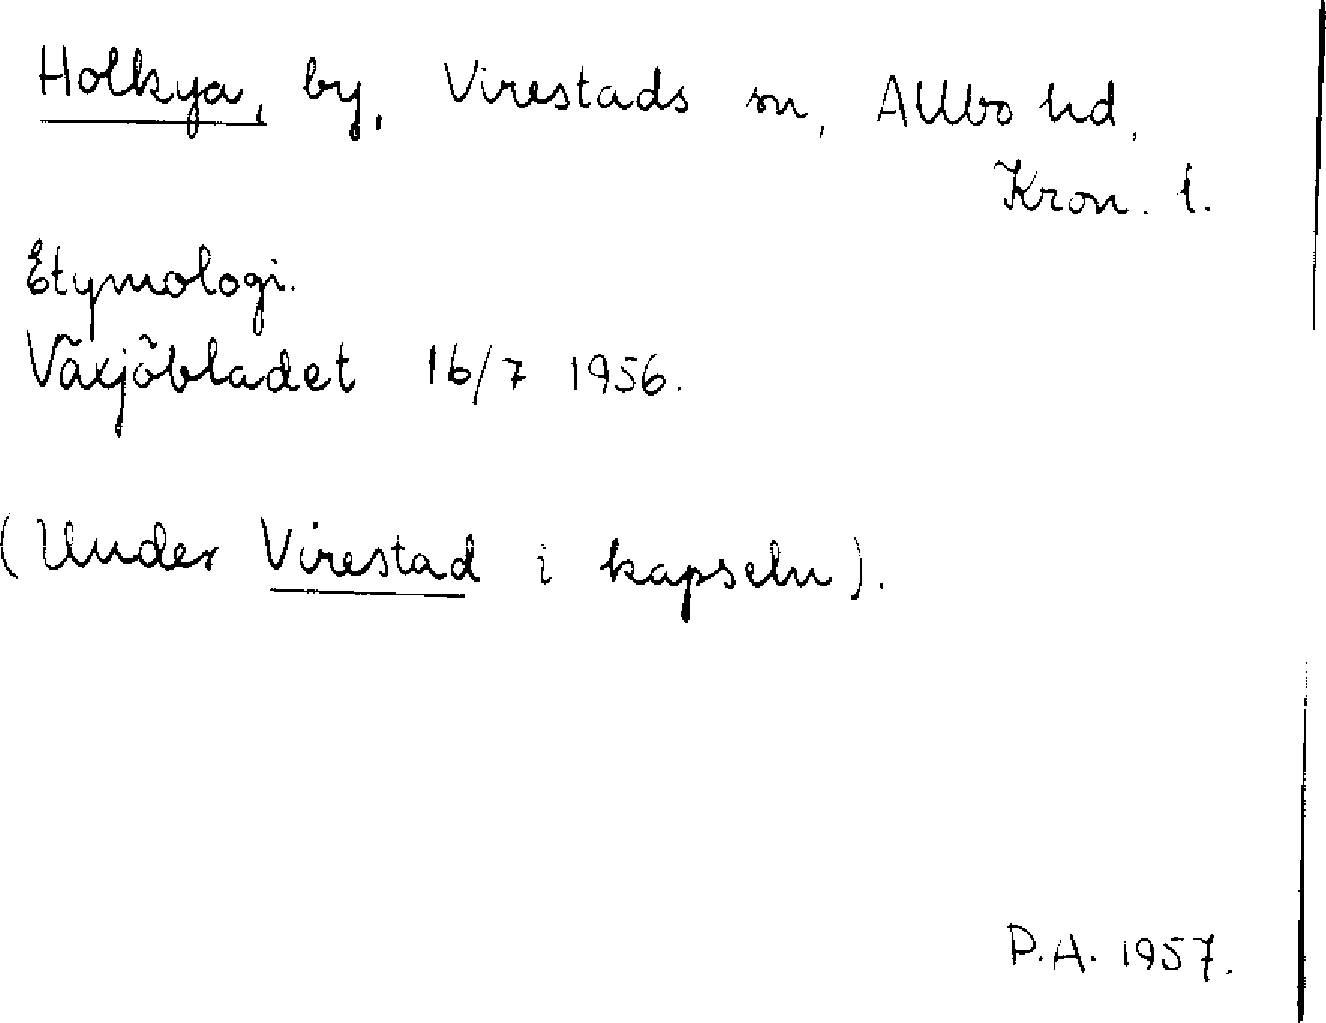 Holkya, by, Virestads sn, Allbo hd,
Kron. l.
Etymologi.
Växjöbladet 16/7 1956.
(Under Virestad i kapseln).
P.A. 1957.